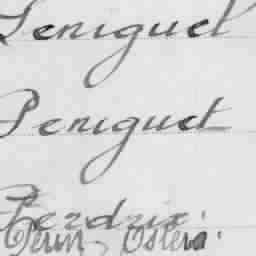 Peniguel
Peniguet
Perdrix.
Perin, Ostera.